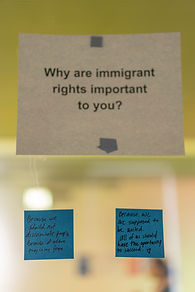 Why are immigrant
rights important
to you?
Because we
should not
discriminate people
because of where
they come from
Because we
are supposed to
be united.
All of us should
have the opportunity
to succeed.